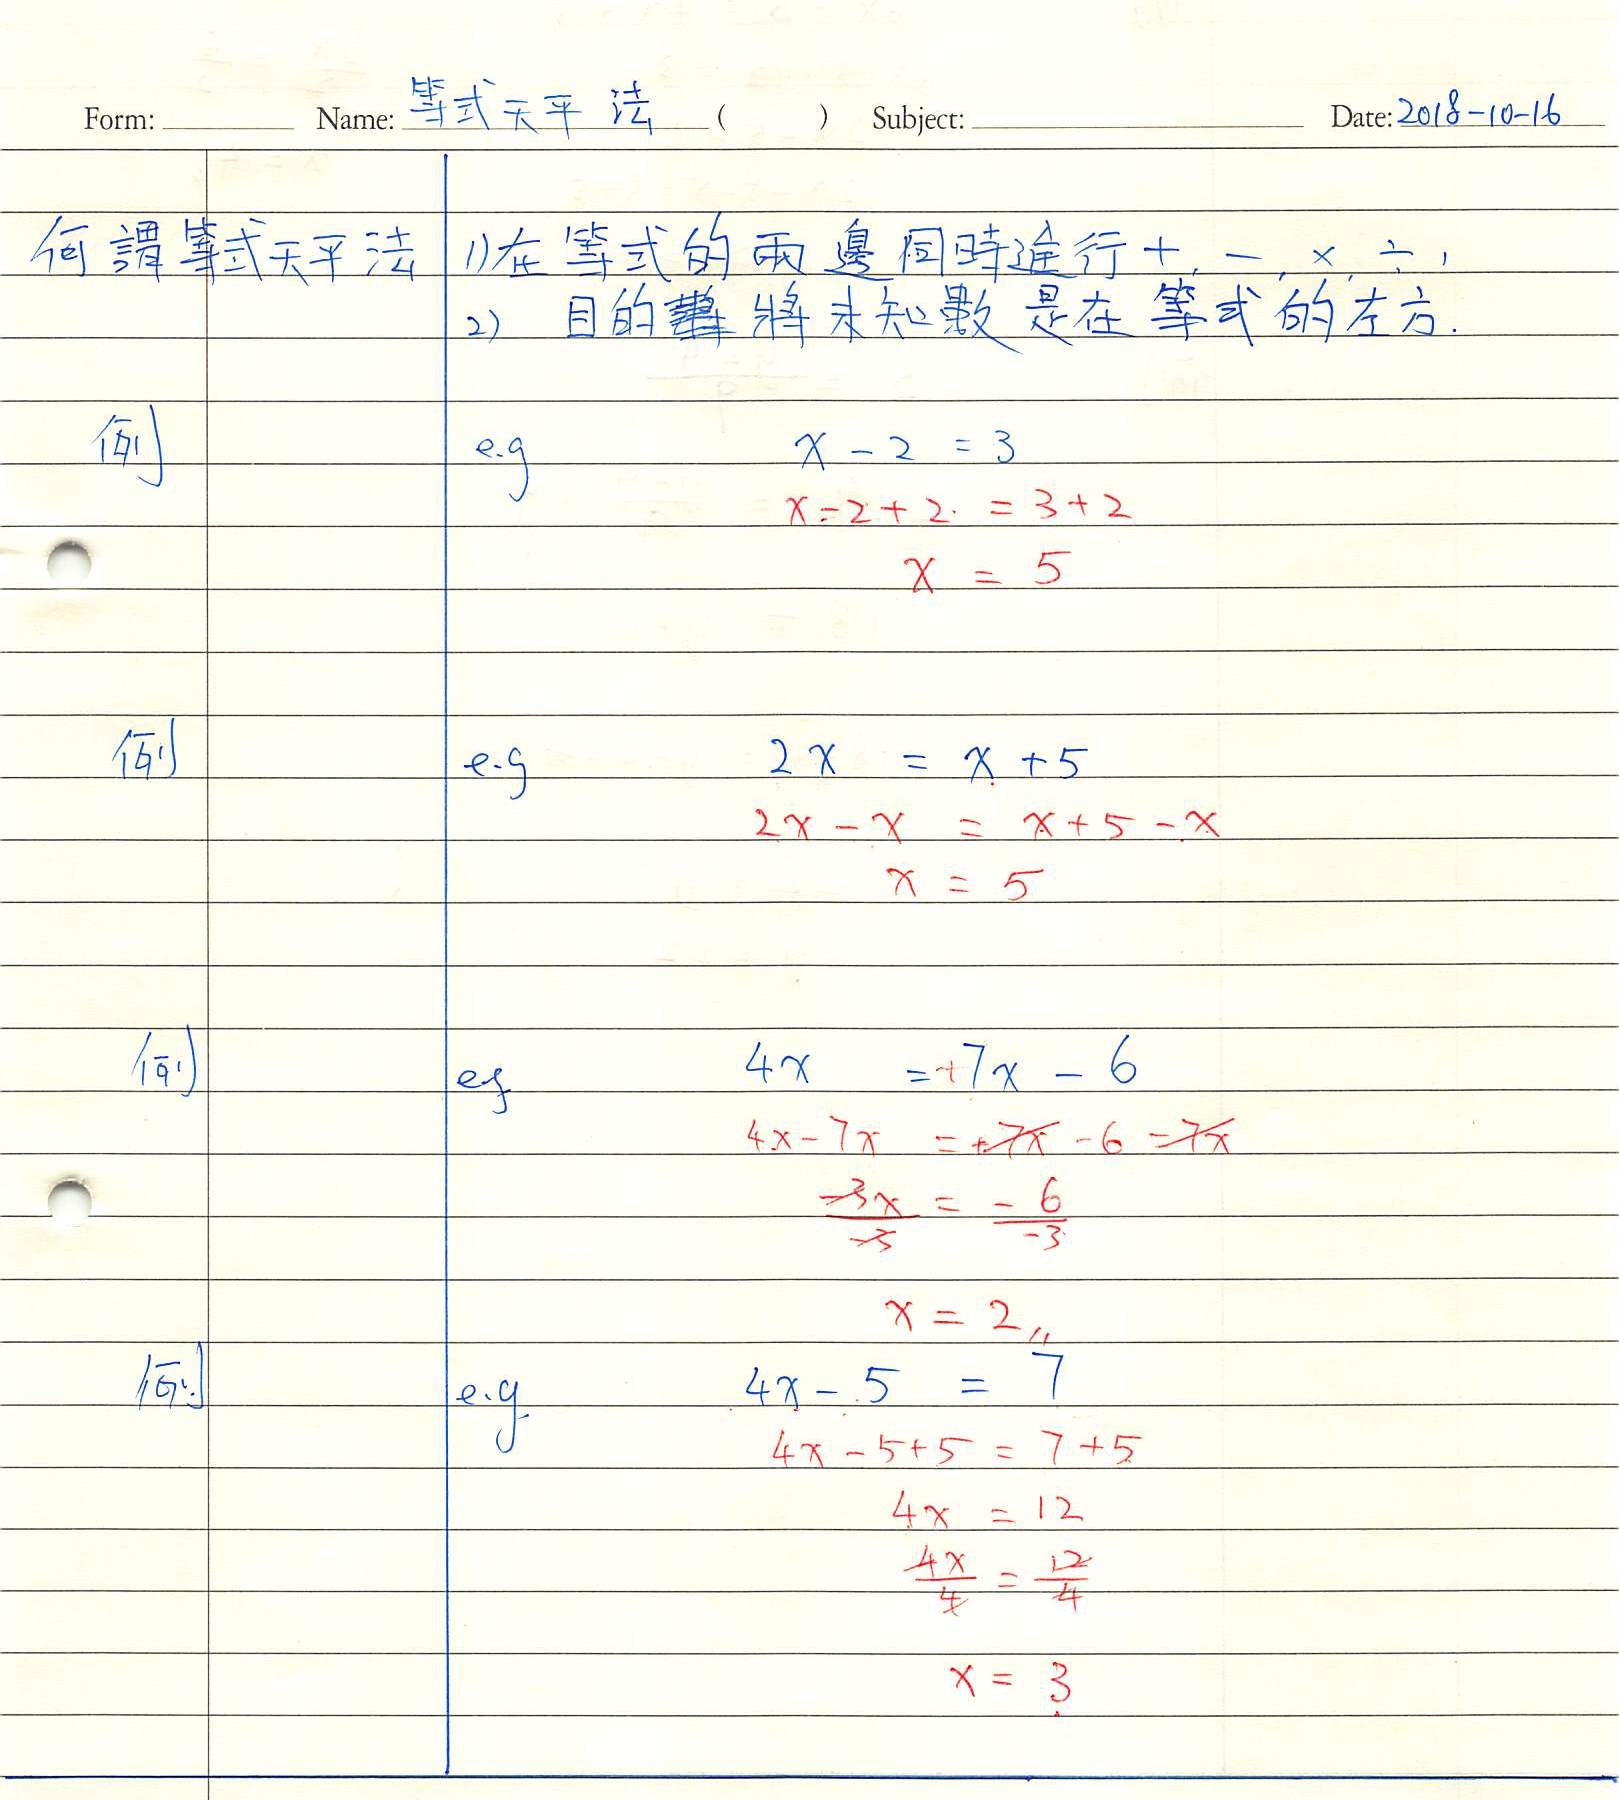 Form: Name: 等式天平法 ( ) Subject: Date: 2018-10-16
何謂等式天平法 1) 在等式的兩邊同時進行 +, -, ×, ÷,
2) 目的 將未知數是在等式的左方.
例 e.g x - 2 = 3
x - 2 + 2 = 3 + 2
x = 5
例 e.g 2x = x + 5
2x - x = x + 5 - x
x = 5
例 eg 4x = +7x - 6
4x - 7x = +7x - 6 - 7x
-3x = - 6
-3 -3
x = 2,,
例 e.g 4x - 5 = 7
4x - 5 + 5 = 7 + 5
4x = 12
4x = 12
4 4
x = 3